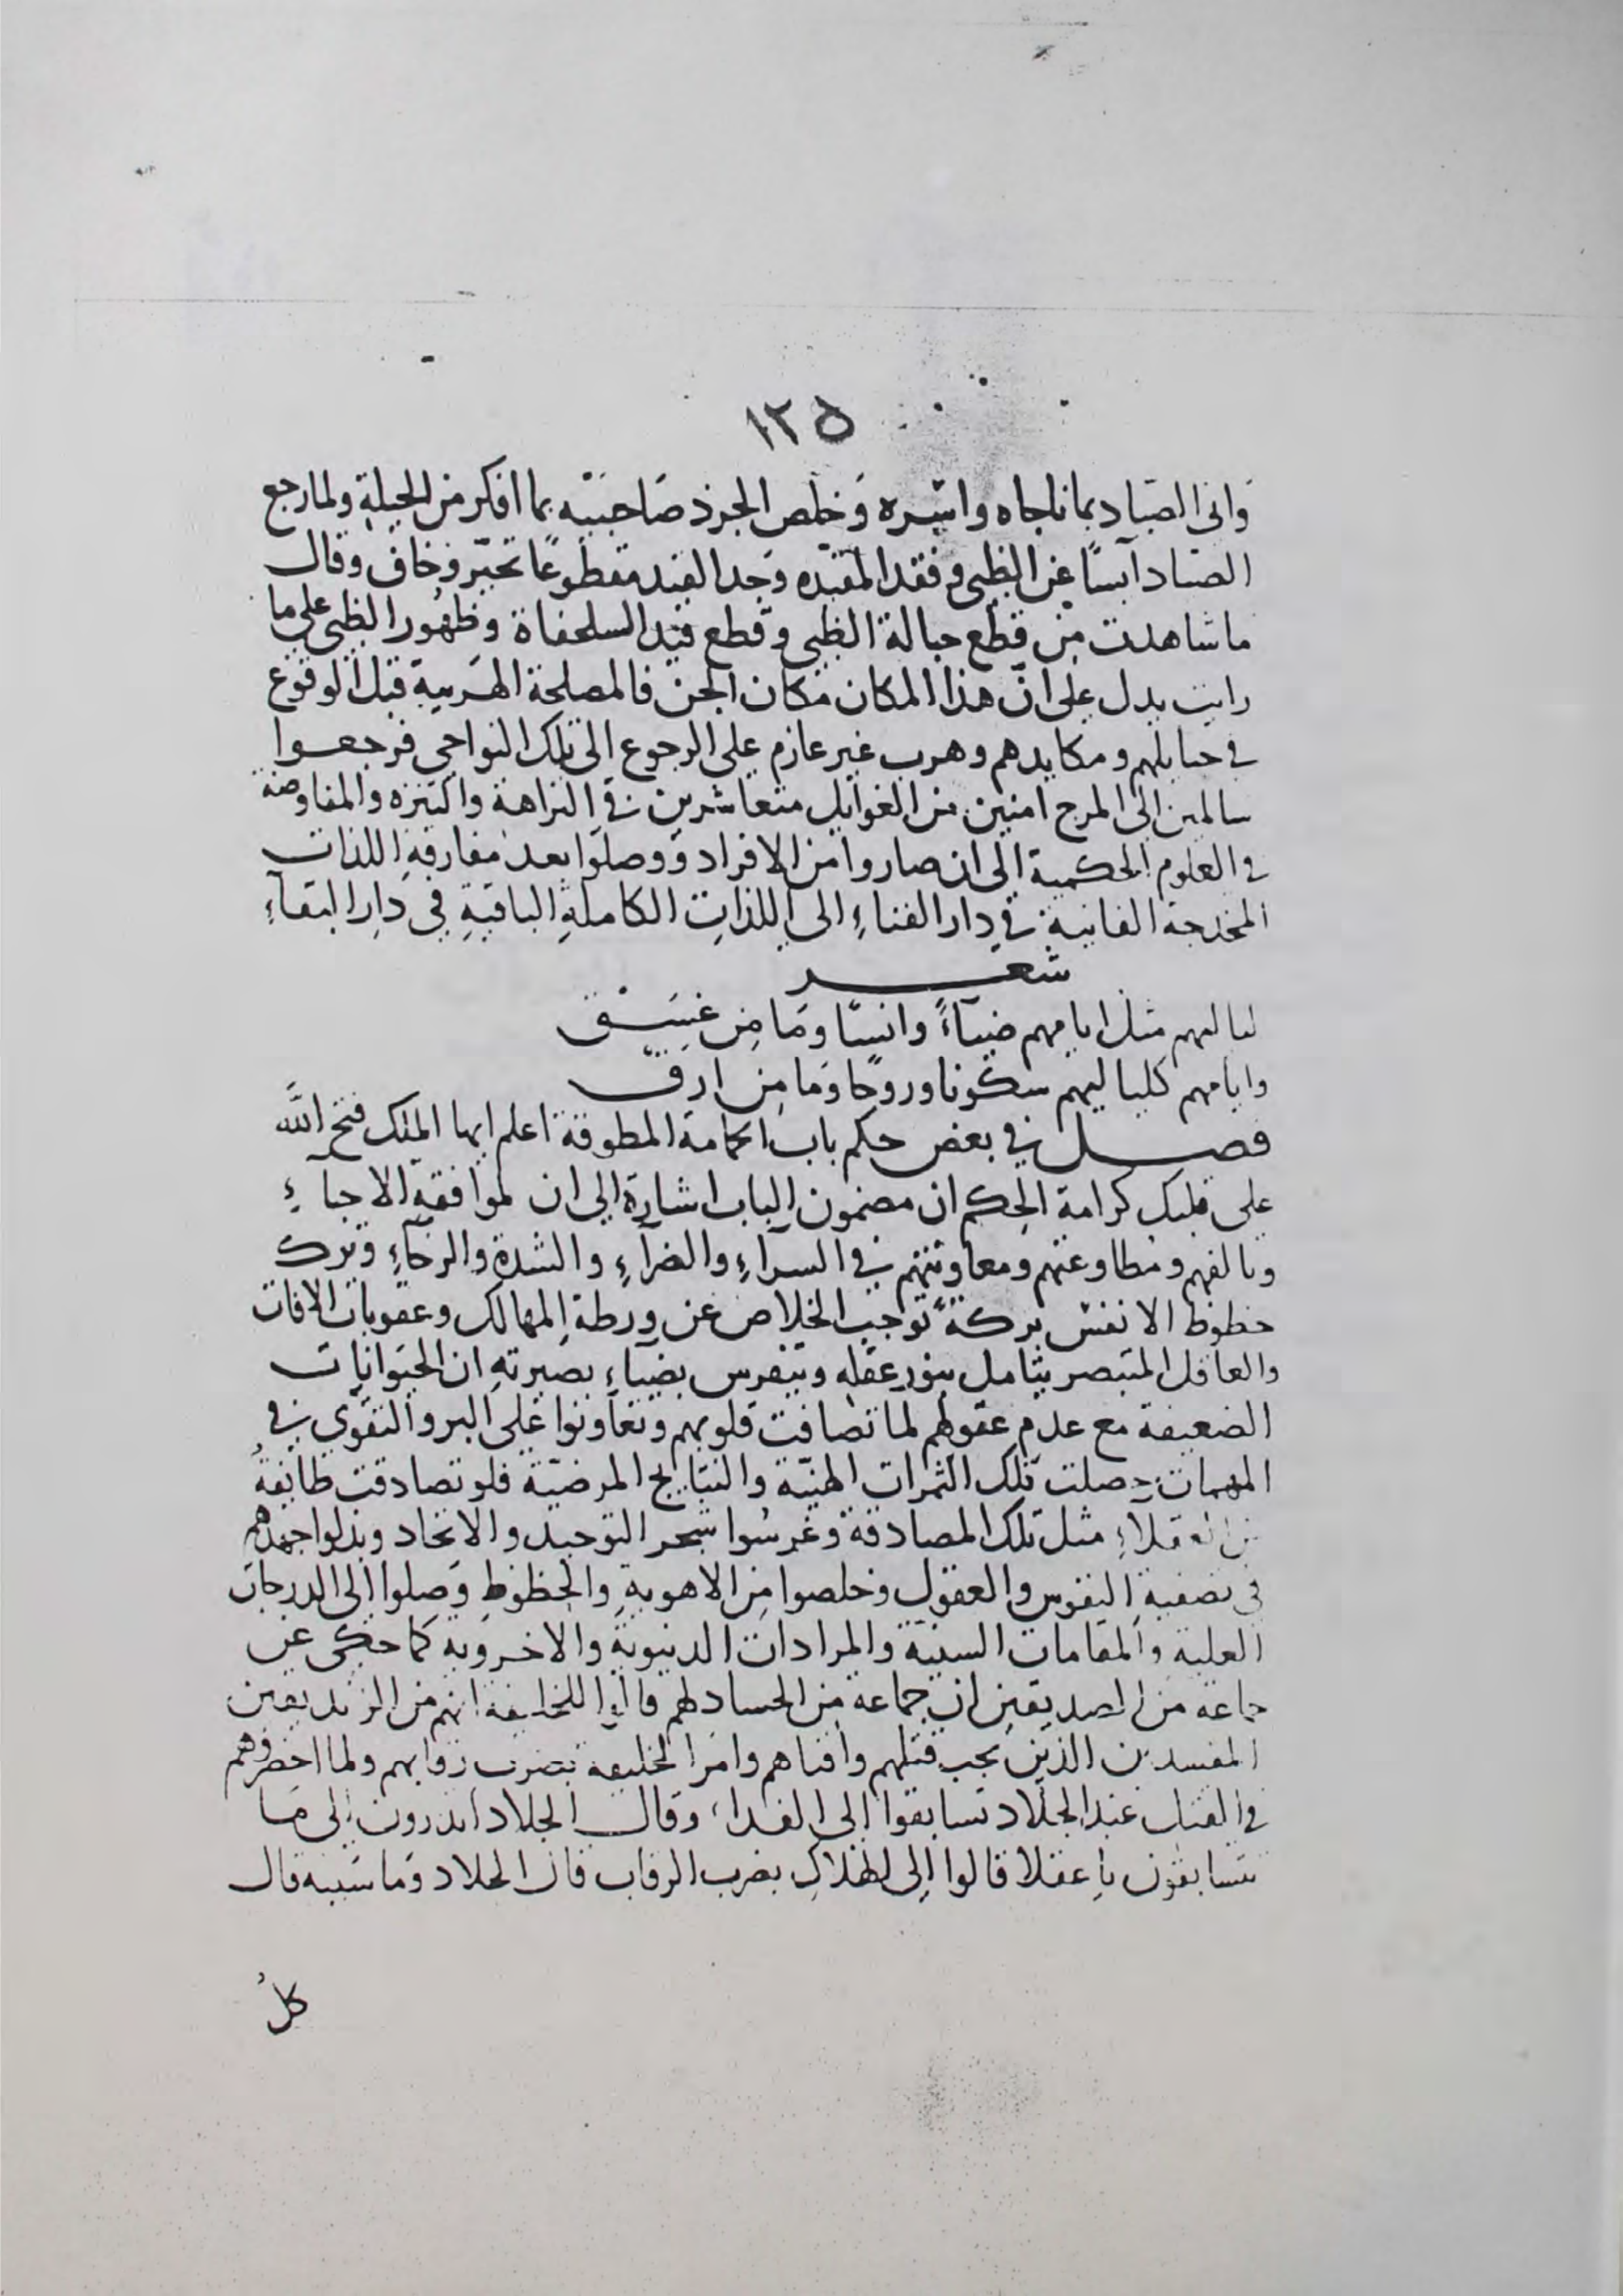 ١٢٥
واتى الصياد بما ناجاه واسره وخلص الجرذ صاحبته بما افكر من الحيلة ولما رجع
الصياد آيسًا عن الظبى وفقد المقيده وجد القيد مقطوعًا تحيّر وخاف وقال
ما شاهدت من قطع حبالة الظبى وقطع قيد السلحفاة وظهور الظبى على ما
رايت يدل على انّ هذا المكان مكان الجن فالمصلحة الهربية قبل الوقوع
فى حبايلهم ومكايدهم وهرب غير عازم على الرجوع الى تلك النواحى فرجعوا
سالمين الى المرج امنين من الغوايل متعاشرين فى النزاهة والتنزه والمفاوضة
فى العلوم الحكمية الى ان صاروا من الافراد ووصلوا بعد مفارقة اللذات
المخدجة الفانية فى دار الفناءِ الى اللذاتِ الكاملةِ الباقيةِ فى دارِ البقآءِ
شعر
لياليهم مثل ايامهم ضيآءً وانسًا وما من غسق
وايامهم كلياليهم سكونا وروحًا وما من ارق
فصل فى بعض حكم باب الحمامة المطوقة اعلم ايها الملك فتح اللّه
على قلبك كرامة الحكم ان مضمون الباب اشارة الى ان لموافقة الاحباءِ
وتالفهم ومطاوعتهم ومعاونتهم فى السرآءِ والضرآءِ والشدة والرخآءِ وترك
حظوظ الانفس بركةً توجب الخلاص عن ورطة المهالك وعقوبات الافات
والعاقل المتبصر يتامل بنور عقله ويتفرس بضياءِ بصيرته ان الحيوانات
الضعيفة مع عدم عقولهم لما تصافت قلوبهم وتعاونوا على البر والتقوى فى
المهمات حصلت تلك الثمرات الهنيّة والنتايج المرضيّة فلو تصادقت طايفةُ
من العقلاءِ مثل تلك المصادقة وغرسُوا شجر التوحيد والاتحاد وبذلوا جهدهم
فى تصفيةِ النفوس والعقول وخلصوا من الاهويةِ والحظوظِ وصلوا الى الدرجات
العلية والمقامات السنيّة والمرادات الدنيويةِ والاخروية كما حكى عن
جماعة من الصديقين ان جماعة من الحساد لهم قالوا للخليفة انهم من الزنديقين
المفسدين الذين يجب قتلهم وافناهم وامر الخليفة بضرب رقابهم ولما احضروهم
فى القتل عند الجلّاد تسابقوا الى الفدا، وقال الجلاد اتدرون الى ما
تتسابقون يا عقلا قالوا الى الهلاكِ بضرب الرقاب قال الجلاد وما سببه قال
كلُ